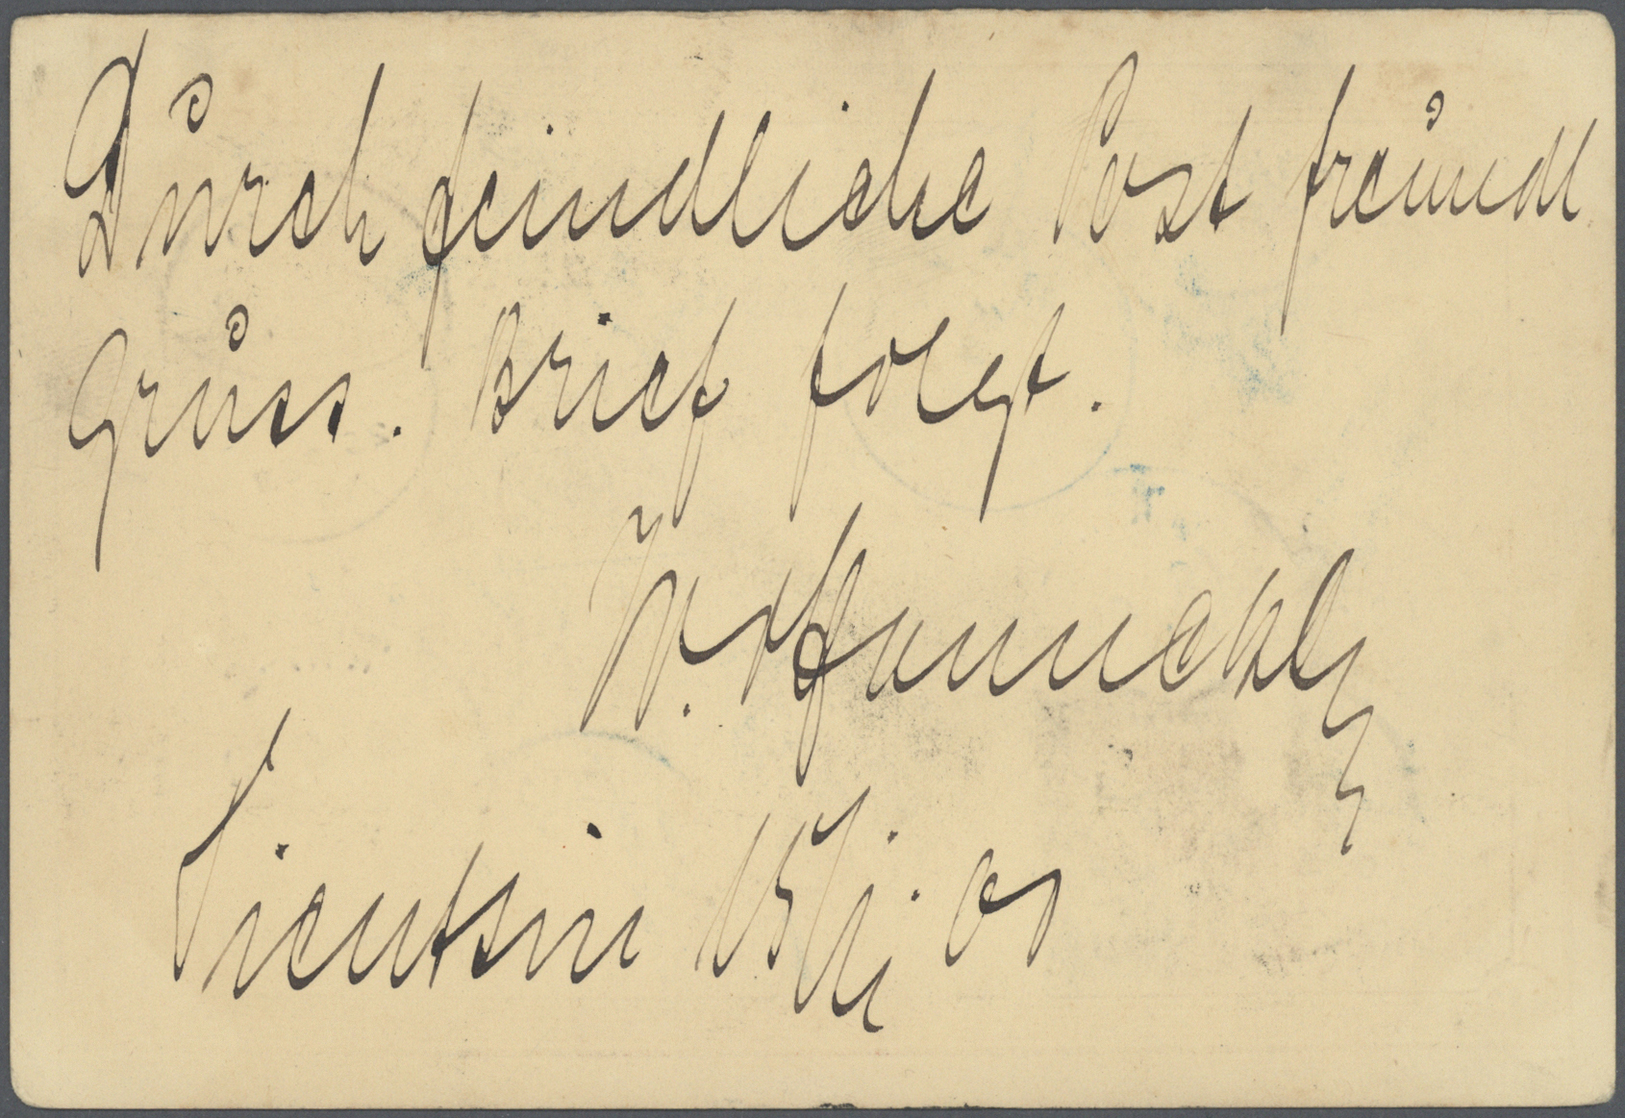 Durch feindliche Post freundl
Gruss. Brief folgt.
W.
Tientsin 01